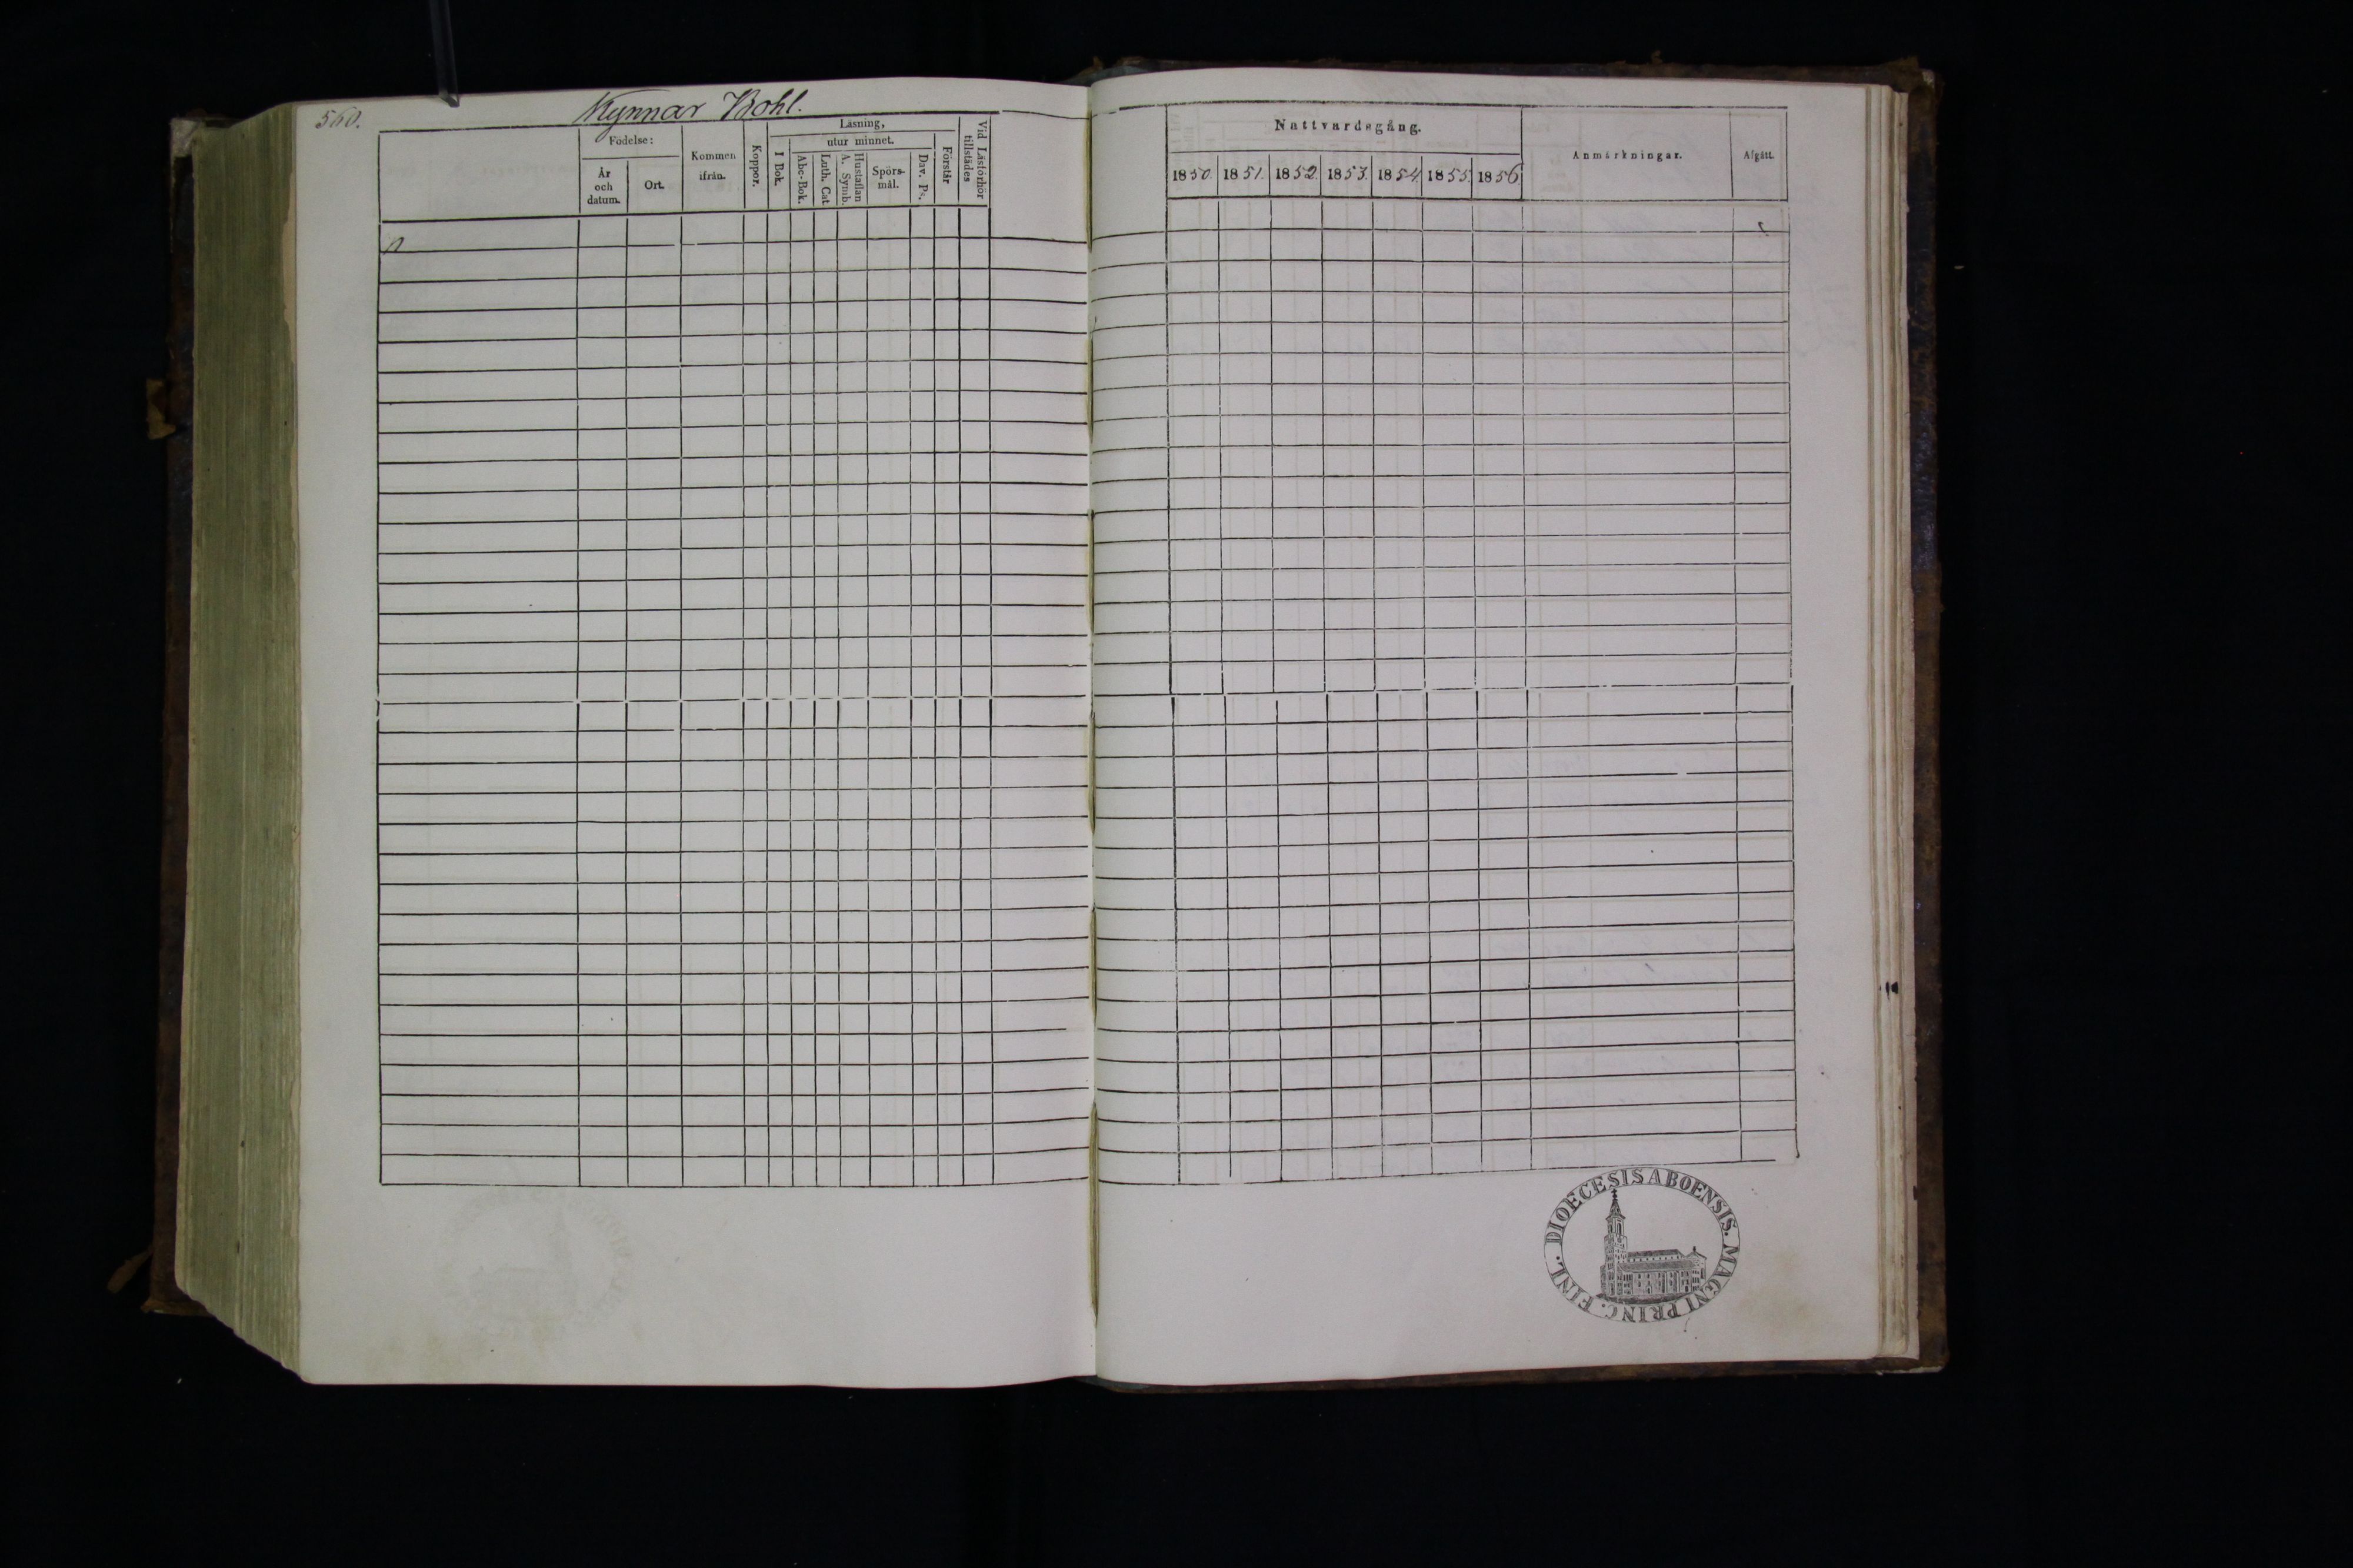 560.
Kynnar Bohl.
Födelse:
År
och
datum.
Ort.
Kommen
ifrån.
Koppor.
Läsning,
utur minnet.
I Bok.
Abc-Bok.
Luth. Cat
A. Symb.
Hustaflan
Spörs-
mål.
Dav. Ps.
Förstår
Vid Läsförhör
tillstädes
Nattvardsgång.
1850. 1851. 1852. 1853. 1854. 1855. 1856
Anmärkningar.
Afgått.
DIOECESIS ABOENSIS. MAGNI PRINC. FINL.